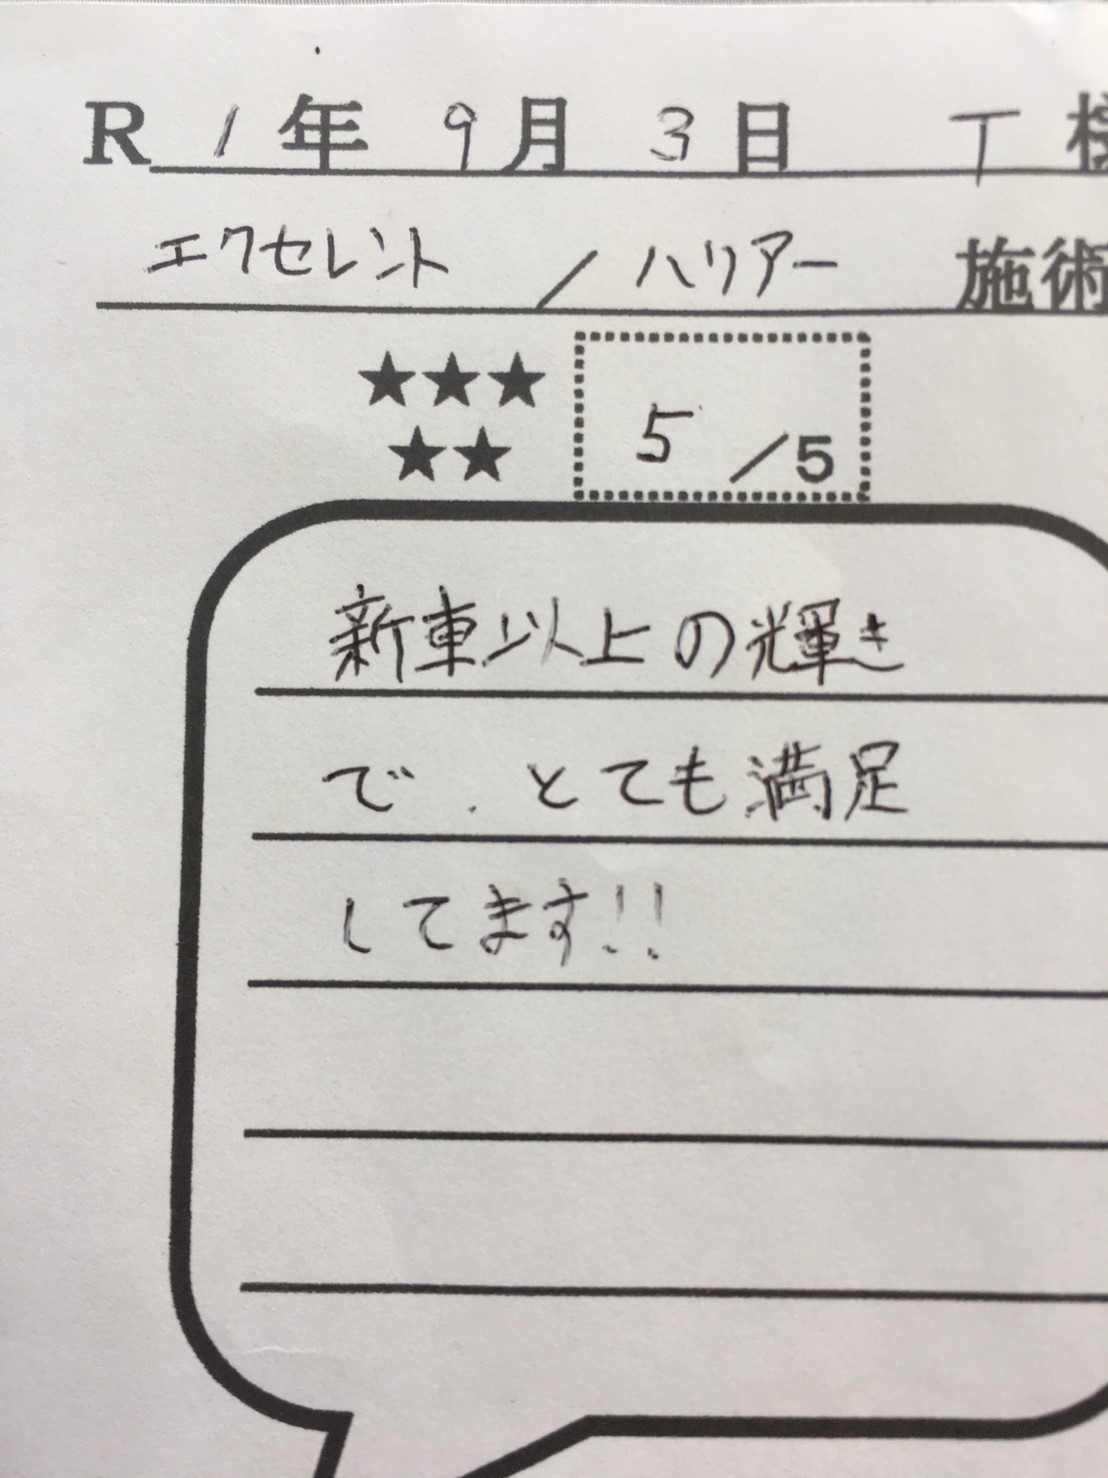 R 1年 9月 3日 T 様
エクセレント / ハリアー 施術
★★★
★★ 5 /5
新車以上の輝き
で、とても満足
してます!!